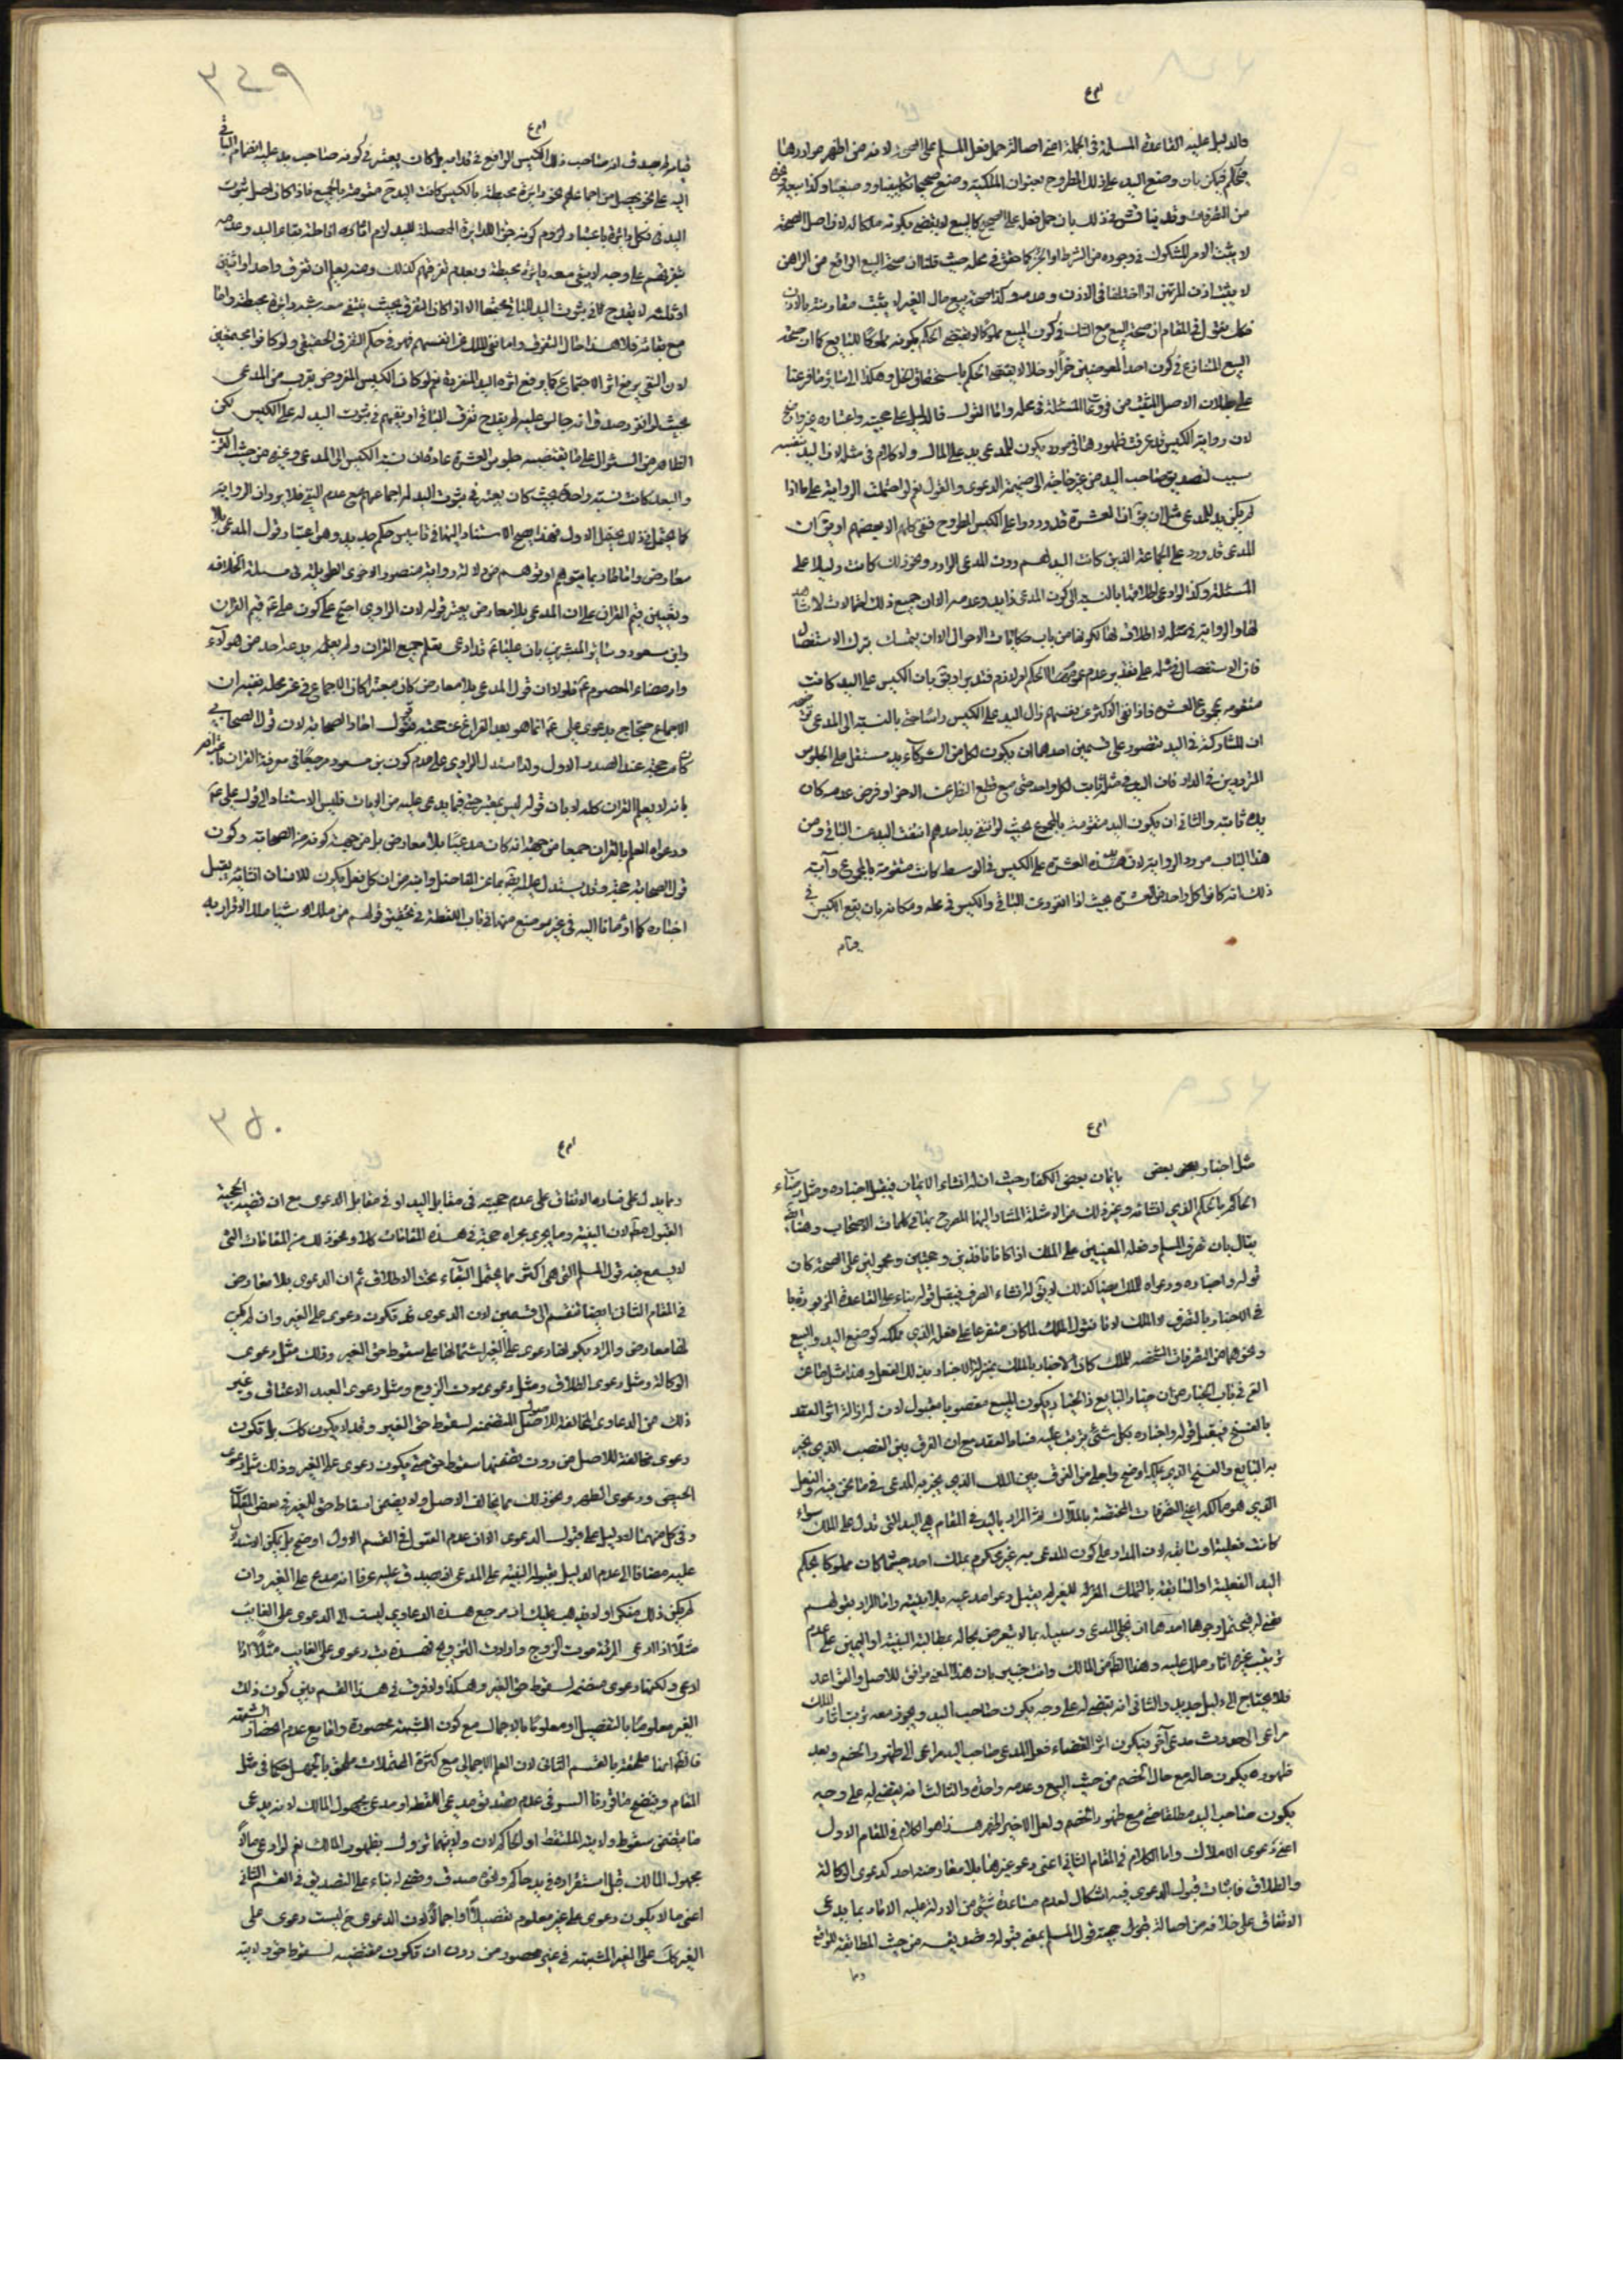 والدليل عليه القاعدة المسلمة في الجملة اعني اصالة حمل فعل المسلم على الصحة لانه من اظهر مواردها
بان وضع اليد على ذلك المطروح بعنوان الملكية وضع صحيح
من التصرفات وقد يناقش في ذلك بان حمل فعل على الصحيح كالبيع لا يقتضي بكونه ملكا له لان اصل الصحة
لا يثبت الامر المشكوك في وجوده من الشرط او الجزء كما حقق في محله حيث قلنا ان صحة البيع الواقع من الراهن
لا يثبت اذن المرتهن اذا اختلفا في الاذن وعدمه وكذا صحة بيع مال الغير لا يثبت مقارنته بالاذن
فكل نقول في المقام ان صحة البيع مع الشك في كون المبيع مملوكا لا يقتضي الحكم بكونه مملوكا للبايع كما ان صحة
البيع المتنازع في كون احد العوضين خمرا او خلا لا يقتضي الحكم باستحقاق الخل وهكذا الى سائر ما فرعنا
على بطلان الاصل المثبت من فروعات المسئلة في محله واما القول فالدليل على حجيته واعتباره غير واضح
لان رواية الكيس قد عرفت ظهورها في مورد يكون للمدعي يد على المال ولا كلام في مثله لان اليد بنفسه
سبب لتصديق صاحب اليد من غير حاجة الى ضميمة الدعوى والقول نعم لو احتملت الرواية على ما اذا
لم يكن يد للمدعي مثل ان يق ان العشرة قد وردوا على الكيس المطروح فنفى كلهم الا بعضهم او يق ان
المدعي قد ورد على الجماعة الذين كانت اليد لهم دون المدعي الوارد ونحو ذلك كانت دليلا على
المسئلة وكذا لو ادعي اطلاقها بالنسبة الى كون المدعي ذا يد وعدمه الا ان جميع ذلك احتمالات لا شاهد
لها والرواية في مثله لا اطلاق لها لكونها من باب حكايات الاحوال الا ان يتمسك بترك الاستفصال
فان الاستفصال في مثله على تقدير عدم عموم الحكم لازم فتدبر او يق بان الكيس على اليد كانت
متقومة بمجموع العشرة فاذا نفى الاكثر عن نفسهم زال اليد على الكيس راسا حتى بالنسبة الى المدعي
ان المشاركة في اليد متصور على قسمين احدهما ان يكون لكل من الشركاء يد مستقل على الجلوس
المترددين في الدار فان اليد في مثله ثابت لكل واحد حتى مع قطع النظر عن الاخر او فرض عدمه كان
يده ثابتة والثاني ان يكون اليد متقومة بالمجموع بحيث لو انتفى يد احدهم انتفت اليد عن الباقي ومن
هذا الباب مورد الرواية لان هذه العشرة على الكيس في الوسط كانت متقومة بالمجموع وآية
ذلك انه كانوا كل واحد من العشرة بحيث لو انفرد عن الباقي والكيس في محله ومكانه بان يقع الكيس في
٣٤٩
لم يصدق انه صاحب ذلك الكيس الواقع في قدامه بل كان يعتبر في كونه صاحب يد عليه انضمام الباقي
اليه على نحو يحصل من اجماعهم نحو دائرة محيطة بالكيس كانت اليد ح متقومة بالجميع فاذا كان اصل ثبوت
اليد في كل دائرة باعتبار لزوم كونه جزء الدائرة المحصلة لليد لازم اقراره اناطة بقاء اليد وعدمه
بتفرقهم على وجه لا يبقى معه دائرة محيطة وبعدم تفرقهم كذلك ومنه يعلم ان تفرق واحد او اثنين
او ثلثه لا يقدح في ثبوت اليد للباقي مجتمعا الا اذا كان التفرق بحيث ينتفي معه رسم دائرة محيطة واما
مع بقائه فلا هذا حال التفرق واما نفي الملك عن انفسهم فهو في حكم التفرق الحقيقي ولو كانوا مجتمعين
لان النفي يرفع اثر الاجتماع كما يرفع اثره اليد المنفردة نعم لو كان الكيس المفروض بقرب من المدعي
بحيث لو انفرد صدق انه جالس عليه لم يقدح تفرق الباقي او نفيهم في ثبوت اليد له على الكيس لكن
الظاهر من السئوال على ما يقتضيه جلوس العشرة عادة ان نسبة الكيس الى المدعي وغيره من حيث القرب
والبعد كانت نسبة واحدة بحيث كان يعتبر في ثبوت اليد لهم اجماعهم مع عدم النفي فلا يرد ان الرواية
كما يحتمل ذلك يحتمل الاول فهذا يصح الاستناد اليها في تاسيس حكم جديد وهي اعتبار قول المدعي بلا
معارض واما ما ربما يتوهم او توهم من دلالة رواية منصور الاخرى الطويلة في مسئلة الخلافة
وتعيين قيم القران على ان المدعي بلا معارض يعتبر قوله لان الراوي احتج على كون علي ع قيم القران
وابن مسعود وسائر المفسرين بان عليا ع قد ادعى تعلم جميع القران ولم يعلم يدعيه احد من هولاء
وامضاه المعصوم ع فلولا ان قول المدعي بلا معارض كان معتبرا كان الاجماع في غير محله ففيه ان
الاجماع احتجاج بدعوى علي ع انما هو بعد الفراغ عن حجية قول احاد الصحابة لان قول الصحابي
كان حجة عند الصدر الاول ولذا استدل الراوي على عدم كون ابن مسعود مرجعا في معرفة القران
بانه لا يعلم القران كله لا بان قوله ليس بمعتبر حتى فيما يدعي عليه من الايات فليس الاستناد الى قول علي ع
ودعواه العلم بالقران جميعا من جهة انه كان مدعيا بلا معارض بل من جهة كونه من الصحابة وكون
قول الصحابة حجة وقد يستدل على المسئلة بما عن الفاضل وابنه من ان كل فعل يكون للانسان انشائه يقبل
اخباره كما اومانا اليه في غير موضع منها في باب اللقطة في تحقيق قولهم من ملك شيئا ملك الاقرار به
مثل اخبار بعض بايمان بعض الكفار حيث ان له انشاء الايمان فيقبل اخباره ومثل اخبار
الحاكم بالحكم الذي انشائه وغير ذلك من الامثلة المشار اليها المصرح بها في كلمات الاصحاب وهنا
يقال بان تصرف المسلم وفعله المعنيين على الملك اذا كانا نافذين وحجتين ومحمولين على الصحة كان
قوله واخباره ودعواه للملك ايضا كذلك لان له انشاء التصرف فيقبل قوله بناء على القاعدة المزبورة
في الاخبار بالتصرف لا الملك لانا نقول الملك لما كان متفرعا على فعله الذي يملكه كوضع اليد والبيع
ونحوهما من التصرفات المختصة بالملك كان الاخبار بالملك بمنزلة الاخبار بذلك الفعل وهذا مثل ما عن
القوم في باب الخيار من ان خيار البايع ذا الخيار بكون المبيع مغصوبا مقبول لان له ازالة اثر العقد
بالفسخ فيقبل قوله واخباره بكل شئ يترتب عليه فساد العقد مع ان الفرق بين الغصب الذي يخبر
به البايع والفسخ الذي يملكه اوضح واجلى من الفرق بين الملك الذي يخبر به المدعي في ما نحن فيه والفعل
الذي هو مالكه اعني التصرفات المختصة بالملاك ثم المراد باليد في المقام هي اليد التي تدل على الملك سواء
كانت فعلية او سابقة لان المدار على كون المدعى به غير محكوم بملك احد حيثما كان مملوكا بحكم
اليد الفعلية او السابقة بالتملك للغير لم يقبل دعوا مدعيه بلا بينة واما المراد بقولهم
قضي له فيحتمل وجوها احدها ان يخلي المدعي وسبيله بما لا يتعرض بحاله بمطالبة البينة او اليمين على عدم
ترتيب غيره اثار ملكه عليه وهذا اظهر من المالك وانت خبير بان هذا المعنى موافق للاصل والقواعد
فلا يحتاج الى دليل جديد والثاني انه يقضي له على وجه يكون صاحب اليد ويجوز معه ترتب اثار الملك
مراعى الى حدوث مدعي آخر فيكون اثر القضاء فعل المدعي صاحب اليد مراعى الى ظهور الخصم وبعد
ظهوره يكون حاله مع حال الخصم من حيث البيع وعدمه واحدة والثالث انه يقضي له على وجه
يكون صاحب اليد مطلقا حتى مع ظهور الخصم ولعل الاخير اظهر هذا هو الكلام في المقام الاول
اعني دعوى الاملاك واما الكلام في المقام الثاني اعني دعوى غيرها بلا معارضة احد كدعوى الوكالة
والطلاق فاثبات قبول الدعوى فيه اشكال لعدم مساعدة شئ من الادلة عليه الا ما ربما يدعى
الاتفاق على خلافه من اصالة حجية قول المسلم بمعنى قبوله وتصديقه من حيث المطابقة للواقع
وما
٣٥٠
وما يدل على فساده الاتفاق على عدم حجيته في مقابل اليد او في مقابل الدعوى مع ان قضية الحجية
القبول مط لان البينة وما يجري مجراه حجة في هذه المقامات كلا ونحو ذلك من المقامات التي
لا يسمع فيه قول المسلم التي هي اكثر مما يحتمل البقاء تحت الاطلاق ثم ان الدعوى بلا معارض
في المقام الثاني ايضا تنقسم الى قسمين لان الدعوى قد تكون دعوى على الغير وان لم يكن
لها معارض والمراد بكونها دعوى على الغير اشتمالها على سقوط حق الغير وذلك مثل دعوى
الوكالة ومثل دعوى الطلاق ومثل دعوى موت الزوج ومثل دعوى العبد الاعتاق وغير
ذلك من الدعاوى المخالفة للاصل المتضمنة لسقوط حق الغير وقد لا يكون كك بل تكون
دعوى مخالفة للاصل من دون تضمنها سقوط حق حتى يكون دعوى على الغير وذلك مثل دعوى
الحيض ودعوى الطهر ونحو ذلك مما يخالف الاصل ولا يقتضي اسقاط حق للغير في بعض المقامات
وفي كل منهما لا دليل على قبول الدعوى الا ان عدم القبول في القسم الاول اوضح بل يمكن الاستدلال
عليه مضافا الى عدم الدليل بقوله البينة على المدعي اذ يصدق عليه عرفا انه مدع على الغير وان
لم يكن ذلك منكرا ولا يذهب عليك ان مرجع هذه الدعاوى ليست الى الدعوى على الغائب
مثلا اذا ادعى المرئة موت الزوج وارادت التزويج فهذه ليست دعوى على الغايب مثلا اذا
ادعى ولكنها دعوى متضمنه لسقوط حق الغير وهكذا ولا فرق في هذا القسم بين كون ذلك
الغير معلوما بالتفصيل او معلوما بالاجمال مع كون الشبهة محصورة واما مع عدم انحصار الشبهة
فالظ انها ملحقة بالقسم الثاني لان العلم الاجمالي مع كثرة المحتملات ملحق بالجهل حكما في مثل
المقام ويتضح منا وفاقا السر في عدم تصديق مدعي اللقطة او مدعي مجهول المالك لانه يدعي
ما يقتضي سقوط ولاية الملتقط او الحاكم لان ولايتهما تزول بظهور المالك نعم لو ادعى مالا
مجهول المالك قبل استقراره في يد حاكم ونحوه صدق وقضي له بناء على التصديق في القسم الثاني
اعني ما لا يكون دعوى على غير معلوم تفصيلا او اجمالا لان الدعوى ح ليست دعوى على
الغير كك على الغير المشتبه في غير محصور من دون ان تكون مقتضيه لسقوط حق ولاية